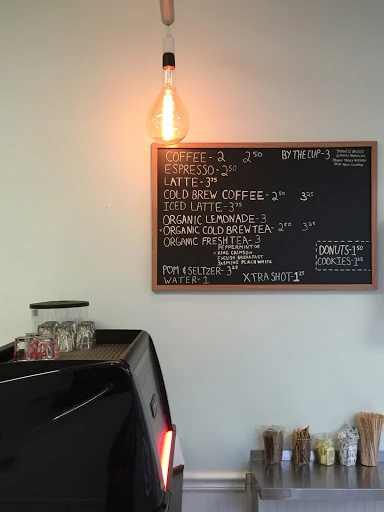 COFFEE - 2 2⁵⁰ BY THE CUP - 3
ESPRESSO - 2⁵⁰
LATTE - 3⁷⁵
COLD BREW COFFEE - 2⁵⁰ 3²⁵
ICED LATTE - 3⁷⁵
ORGANIC LEMONADE - 3
ORGANIC COLD BREW TEA - 2⁵⁰ 3²⁵
ORGANIC FRESH TEA - 3
PEPPERMINT
KING CRIMSON
ENGLISH BREAKFAST
JASMINE PEACH WHITE
DONUTS - 1⁵⁰
COOKIES - 1²⁵
POM & SELTZER - 3²⁵
WATER - 1 XTRA SHOT - 1²⁵